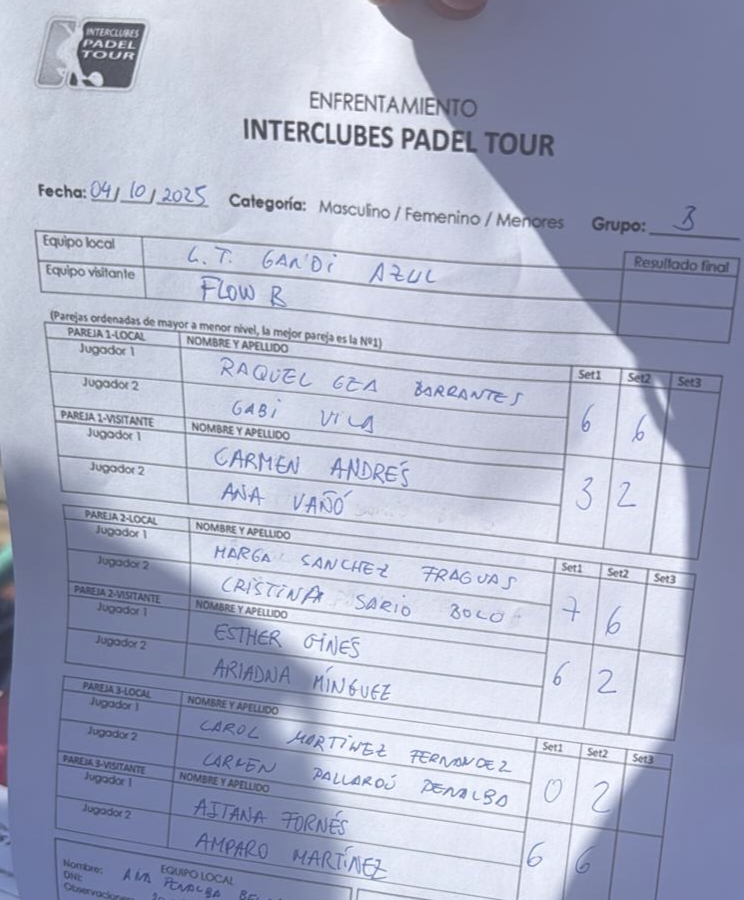 INTERCLUBES
PADEL
TOUR
ENFRENTAMIENTO
INTERCLUBES PADEL TOUR
Fecha: 04/10/2025 Categoría: Masculino / Femenino / Menores Grupo: B
Equipo local C.T. GANDi AZUL Resultado final
Equipo visitante FLOW B
(Parejas ordenadas de mayor a menor nivel, la mejor pareja es la Nº1)
PAREJA 1-LOCAL NOMBRE Y APELLIDO Set1 Set2 Set3
Jugador 1 RAQUEL GEA BARRANTES
Jugador 2 GABI VILA 6 6
PAREJA 1-VISITANTE NOMBRE Y APELLIDO
Jugador 1 CARMEN ANDRÉS
Jugador 2 ANA VAÑÓ 3 2
PAREJA 2-LOCAL NOMBRE Y APELLIDO Set1 Set2 Set3
Jugador 1 MARGA SANCHEZ FRAGUAS
Jugador 2 CRISTINA SARIO BOLO 7 6
PAREJA 2-VISITANTE NOMBRE Y APELLIDO
Jugador 1 ESTHER GINÉS
Jugador 2 ARIADNA MÍNGUEZ 6 2
PAREJA 3-LOCAL NOMBRE Y APELLIDO Set1 Set2 Set3
Jugador 1 CAROL MARTÍNEZ FERNANDEZ
Jugador 2 CARMEN PALLARDÓ PENALBA 0 2
PAREJA 3-VISITANTE NOMBRE Y APELLIDO
Jugador 1 AITANA FORNÉS
Jugador 2 AMPARO MARTÍNEZ 6 6
EQUIPO LOCAL
Nombre: ANA PENALBA
DNI:
Observaciones